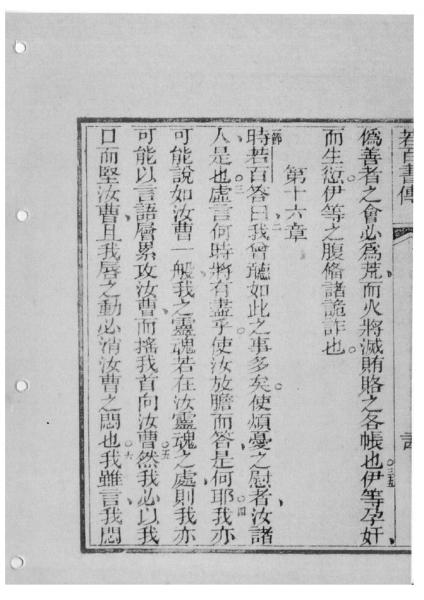 若百書傳
偽善者之會必爲荒而火將滅賄賂之各帳也○三五伊等孕奸
而生愆伊等之腹俻諸詭詐也
第十六章
一節時若百答曰○二我曾聽如此之事多矣使煩憂之慰者汝諸
人是也○三虛言何時將有盡乎使汝放膽而答是何耶○四我亦
可能說如汝曹一般我之靈魂若在汝靈魂之處則我亦
可能以言語層累攻汝曹而搖我首向汝曹○五然我必以我
口而堅汝曹且我唇之動必消汝曹之悶也○六我雖言我悶